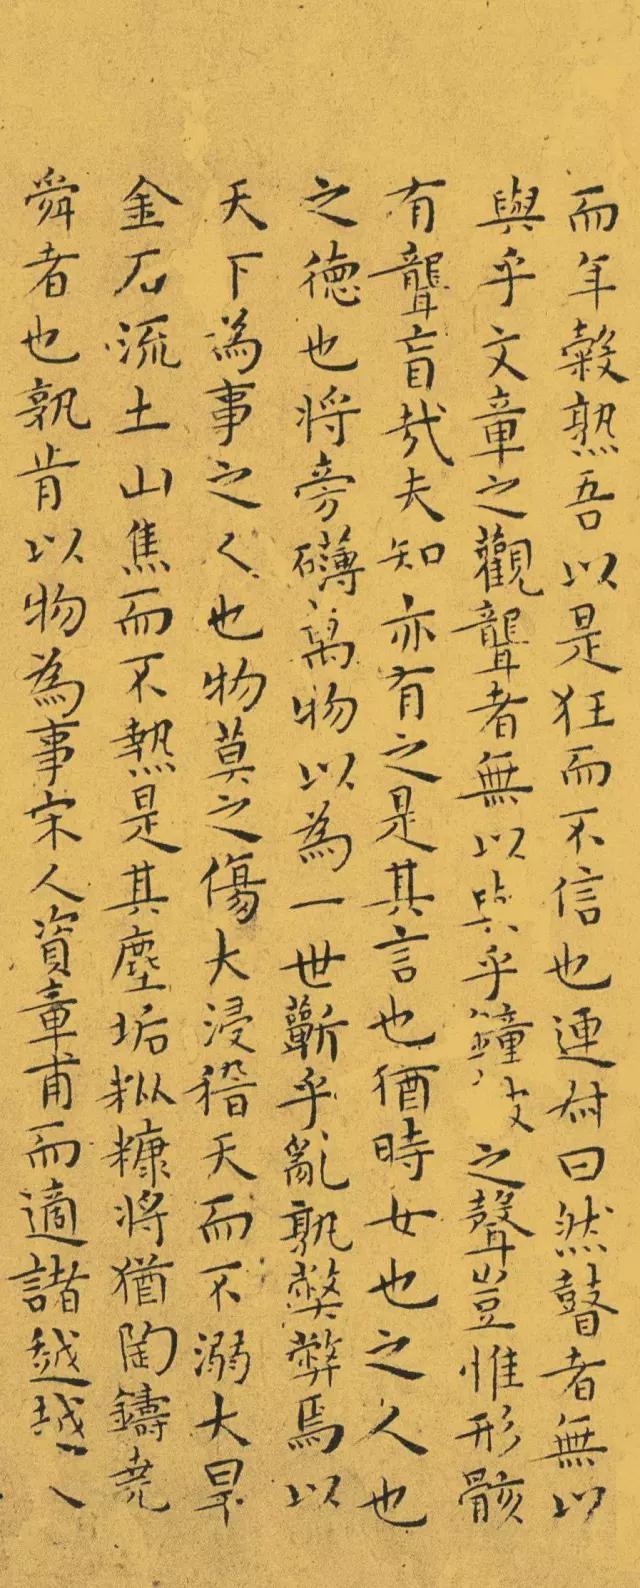 而年穀熟吾以是狂而不信也連叔曰然瞽者無以
與乎文章之觀聾者無以與乎鐘之聲豈惟形骸
有聾盲哉夫知亦有之是其言也猶時女也之人也
之德也將旁礴萬物以為一世蘄乎亂孰弊弊焉以
天下為事之人也物莫之傷大浸稽天而不溺大旱
金石流土山焦而不熱是其塵垢粃糠將猶陶鑄堯
舜者也孰肯以物為事宋人資章甫而適諸越越人